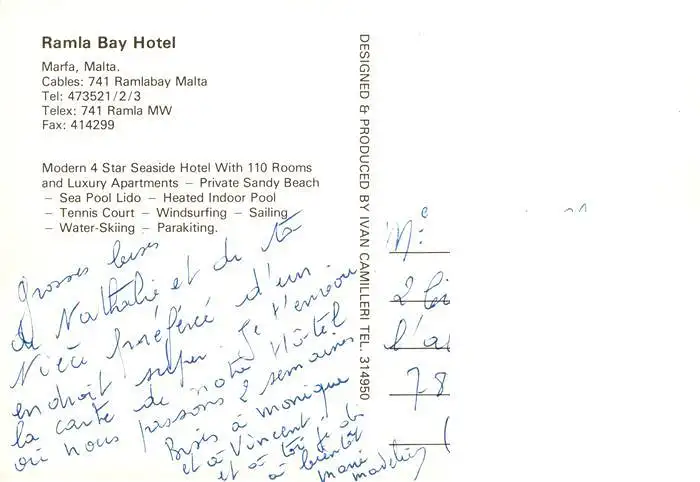 Ramla Bay Hotel
Marfa, Malta.
Cables: 741 Ramlabay Malta
Tel: 473521/2/3
Telex: 741 Ramla MW
Fax: 414299
Modern 4 Star Seaside Hotel With 110 Rooms
and Luxury Apartments – Private Sandy Beach
– Sea Pool Lido – Heated Indoor Pool
– Tennis Court – Windsurfing – Sailing
– Water-Skiing – Parakiting.
grosses bises
de Nathalie et de ta
Nièce préférée d'un
endroit super. Je t'envoie
la carte de notre Hôtel
où nous passons 2 semaines
Bisis à monique
et à Vincent,
et à toi
à bientôt
DESIGNED & PRODUCED BY IVAN CAMILLERI TEL. 314950
2
78